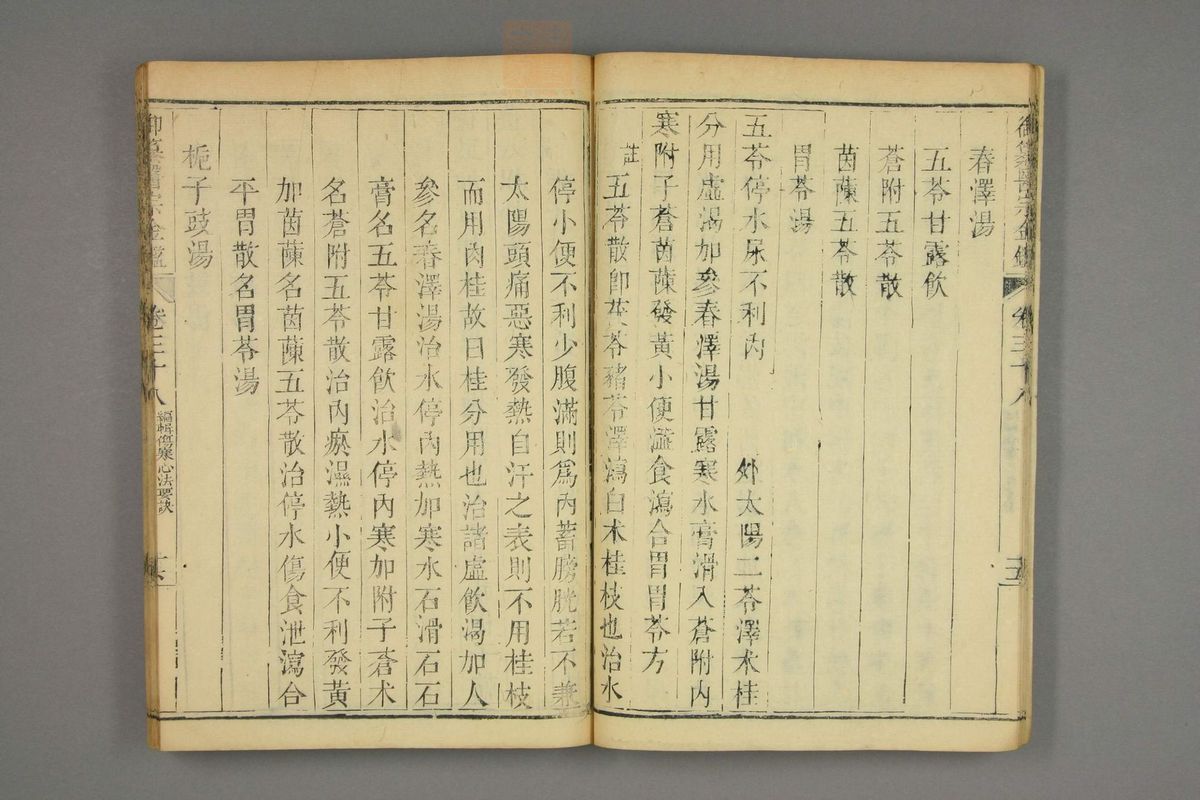 御纂醫宗金鑑 卷三十八 五
春澤湯
五苓甘露飲
蒼附五苓散
茵蔯五苓散
胃苓湯
五苓停水尿不利內 外太陽二苓澤朮桂
分用虛渴加參春澤湯甘露寒水膏滑入蒼附內
寒附子蒼茵蔯發黃小便澁食瀉合胃胃苓方
註五苓散卽茯苓豬苓澤瀉白朮桂枝也治水
停小便不利少腹滿則爲內蓄膀胱若不兼
太陽頭痛惡寒發熱自汗之表則不用桂枝
而用肉桂故曰桂分用也治諸虛飲渴加人
參名春澤湯治水停內熱加寒水石滑石石
膏名五苓甘露飲治水停內寒加附子蒼朮
名蒼附五苓散治內瘀濕熱小便不利發黃
加茵蔯名茵蔯五苓散治停水傷食泄瀉合
平胃散名胃苓湯
梔子豉湯
御纂醫宗金鑑 卷三十八 編輯傷寒心法要訣 六